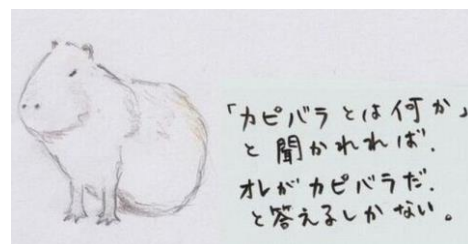 「カピバラとは何か」
と聞かれれば.
オレがカピバラだ.
と答えるしかない。